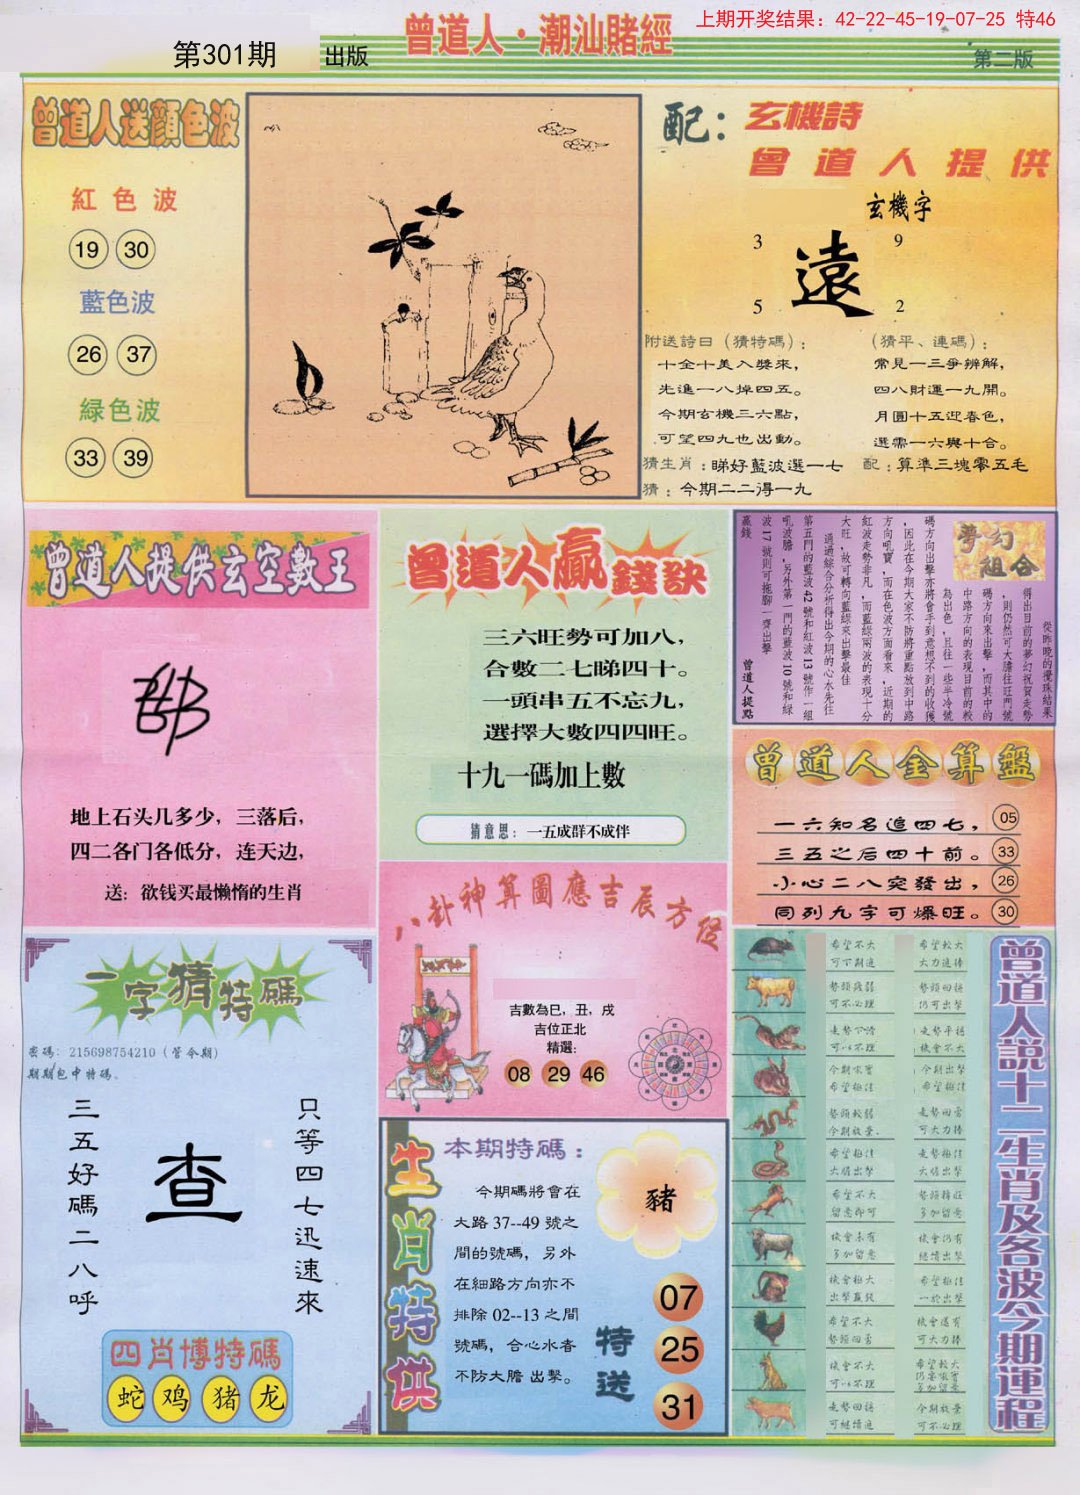 上期开奖结果：42-22-45-19-07-25 特46
第301期
出版
曾道人·潮汕賭經
第二版
曾道人送顔色波
紅色波
19 30
藍色波
26 37
緑色波
33 39
配：
玄機詩
曾道人提供
玄機字
3 9
遠
5 2
附送詩曰（猜特碼）：
十全十美入獎來，
先進一八掉四五。
今期玄機三六點，
可望四九也出動。
（猜平、連碼）：
常見一三爭辨解，
四八財運一九開。
月圓十五迎春色，
選需一六與十合。
猜生肖：睇好藍波選一七
配：算準三塊零五毛
猜：今期二二得一九
曾道人提供玄空數王
地上石头几多少，三落后，
四二各门各低分，连天边，
送：欲钱买最懒惰的生肖
曾道人贏錢訣
三六旺勢可加八，
合數二七睇四十。
一頭串五不忘九，
選擇大數四四旺。
十九一碼加上數
猜意思：一五成群不成伴
夢幻組合
從昨晚的攪珠結果
得出目前的夢幻祝賀走勢
，則仍然可大膽往旺門號
碼方向來出擊，而其中的
中路方向的表現目前的較
為出色，且往一些半冷號
碼方向出擊亦將會手到意想不到的收獲
，因此在今期大家不防將重點放到中路
方向吼寶，而在色波方面看來，近期的
紅波走勢非凡，而藍綠兩波的表現十分
大旺，故可轉向藍綠來出擊最佳
通過綜合分析得出今期的心水先往
第五門的藍波42號和紅波13號作一組
吼波膽，另外第一門的藍波10號和綠
波17號則可拖腳一齊出擊
贏錢
曾道人提點
曾道人金算盤
一六知名追四七，05
三五之后四十前。33
小心二八突發出，26
同列九字可爆旺。30
一字猜特碼
密碼：215698754210（管今期）
期期包中特碼、
三五好碼二八呼
查
只等四七迅速來
四肖博特碼
蛇 鸡 猪 龙
八卦神算圖應吉辰方位
吉數為巳，丑，戌
吉位正北
精選：
08 29 46
生肖特供
本期特碼：
今期碼將會在
大路 37--49 號之
間的號碼，另外
在細路方向亦不
排除 02--13 之間
號碼，合心水者
不防大膽出擊。
豬
特送
07
25
31
曾道人說十二生肖及各波今期運程
希望不大
希望較大
大力追捧
勢頭疲弱
可不必理
勢頭回揚
仍可出擊
走勢平穩
機會不大
今期出擊
希望極佳
勢頭較弱
走勢回雷
可大力捧
希望極佳
大膽出擊
走勢極佳
大膽出擊
希望不大
留意即可
多加留意
機會未有
多加留意
機會仍有
繼續出擊
機會極大
出擊贏錢
希望極佳
一於出擊
希望不大
勢頭回雷
機會還有
可大力捧
機會不大
可以不理
希望較大
多加留意
走勢回揚
可繼續追
今期放棄
可不必理